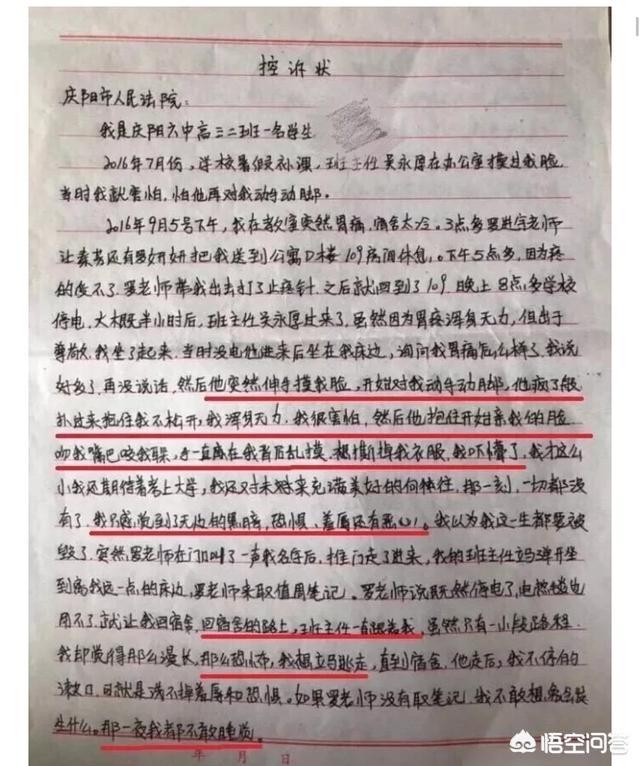 控诉状
庆阳市人民法院：
我是庆阳六中高三二班一名学生
2016年7月份，学校暑假补课，班主任吴永厚在办公室摸过我脸
当时我就害怕，怕他再对我动手动脚。
2016年9月5号下午，我在教室突然胃痛，宿舍太冷。3点多罗进宇老师
让秦芳还有罗妍妍把我送到公寓D楼109房间休息，下午5点多，因为疼
的受不了，罗老师带我出去打了止疼针，之后就回到了109 晚上8点多学校
停电，大概半小时后，班主任吴永厚过来了，虽然因为胃疼浑身无力，但出于
尊敬，我坐了起来，当时没电他进来后坐在我床边，询问我胃痛怎么样了，我说
好多了，再没说话，然后他突然伸手摸我脸，开始对我动手动脚，他疯了般
扑过来抱住我不松开，我浑身无力，我很害怕，然后他抱住开始亲我的脸
吻我嘴巴咬我耳朵，手一直在我背后乱摸，想撕掉我衣服，我吓懵了，我才这么
小我还期待着考上大学，我还对未来充满美好的向往，那一刻，一切都没
有了，我只感觉到了无边的黑暗，恐惧，羞辱还有恶心。我以为我这一生都要被
毁了，突然罗老师在门口叫了一声我名字后，推门走了进来，我的班主任吗弹开坐
到离我远一点的床边，罗老师来取值周笔记。罗老师说既然停电了，电热毯也
用不了，就让我回宿舍，回宿舍的路上，班主任一直跟着我，虽然只有一小段路程
我却觉得那么漫长，那么恐怖，我想立马逃走，直到宿舍，他走后，我不停的
漱口，可就是洗不掉羞辱和恐惧。如果罗老师没有取笔记，我不敢想象会发
生什么。那一夜我都不敢睡觉。
年 月 日
悟空问答